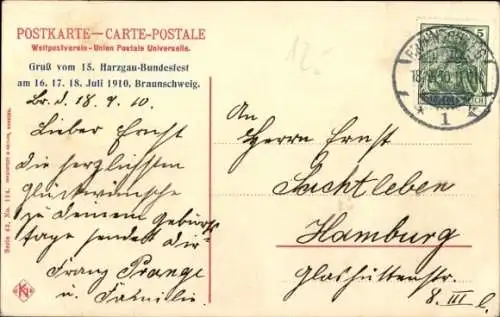 POSTKARTE—CARTE-POSTALE
Weltpostverein - Union Postale Universelle.
Gruß vom 15. Harzgau-Bundesfest
am 16. 17. 18. Juli 1910, Braunschweig.
Br. d. 18. 7. 10.
Lieber Ernst
die herzlichsten
Glückwünsche
zu deinem Geburts-
tage sendet dir
Franz Prange
u. Familie.
12.-
5
1
An
Herrn Ernst
Sachtleben
Hamburg
Glashüttenstr.
8. III l.
Serie 42, No. 114.